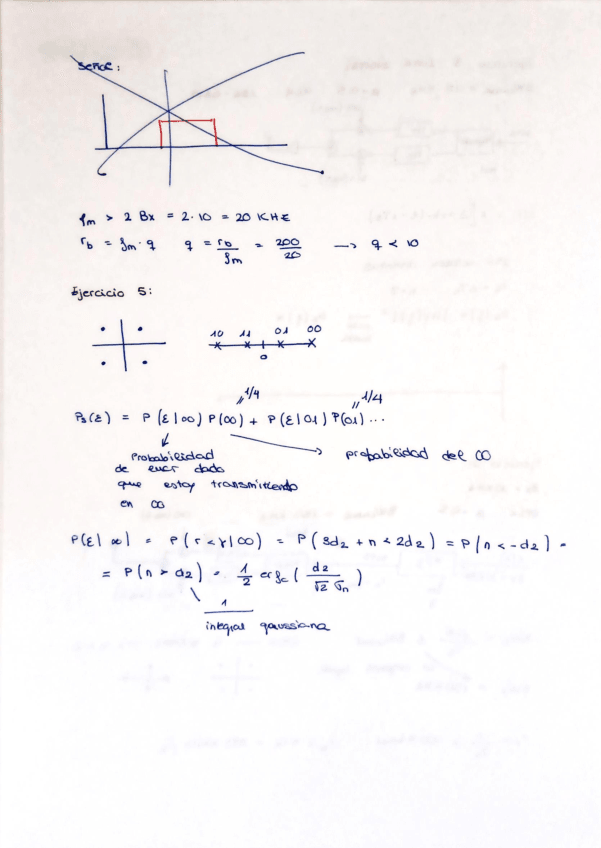 señal:
fm > 2 Bx = 2·10 = 20 KHz
rb = fm·q q = rb/fm = 200/20 → q < 10
Ejercicio 5:
10 11 01 00
0
1/4 1/4
Ps(ε) = P(ε|00) P(00) + P(ε|01) P(01) ...
Probabilidad probabilidad del 00
de error dado
que estoy transmitiendo
en 00
P(ε|00) = P(r<γ|00) = P(3d2 + n < 2d2) = P(n < -d2) =
= P(n > d2) = 1/2 erfc(d2/√2 σn)
1
integral gaussiana